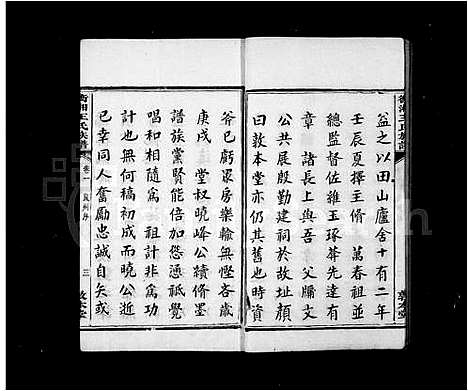 益之以田山廬舍十有二年
壬辰夏擇主脩 萬春祖並
總監督佐雅玉琢華先達有
章 諸長上與吾 父牖文
公共展殷勤建祠於故址顏
曰敦本堂亦仍其舊也時資
斧已虧眾房樂輸無慳吝歲
庚戌 堂叔曉峰公續脩墨
譜族黨賢能倍加慫憑祗覺
唱和相隨為祖計非為功
計也無何稿初成而曉公近
已幸同人奮勵忠誠自矢或
衡湘王氏族譜
卷一
三
敦本堂